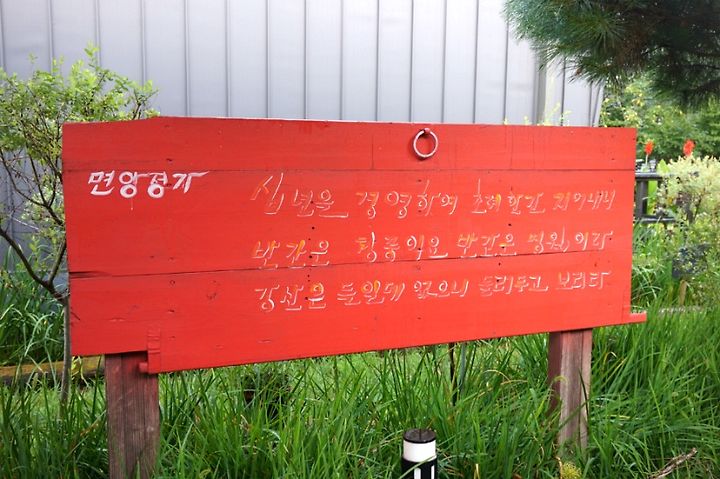 면앙정가
십년은 경영하여 초려한간 지어내니
반간은 청풍이요 반간은 명월이라
강산은 들일데 없으니 둘러두고 보리라